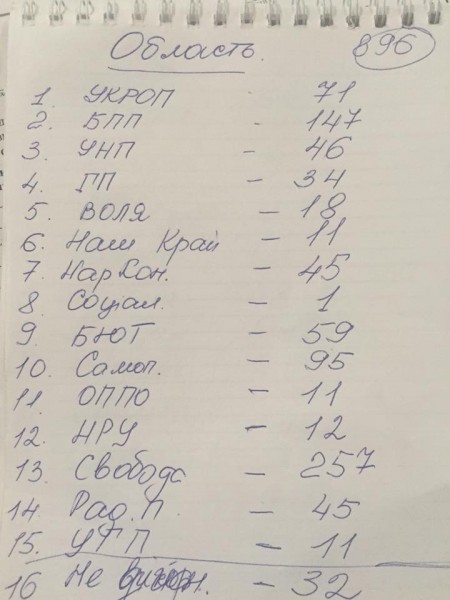 Область. 896
1. УКРОП - 71
2. БПП - 147
3. УНП - 46
4. ГП - 34
5. ВОЛЯ - 18
6. Наш Край - 11
7. НарКон. - 45
8. Соціал. - 1
9. БЮТ - 59
10. Самоп. - 95
11. ОППО - 11
12. НРУ - 12
13. Свобода - 257
14. Рад. П - 45
15. УГП - 11
16 Не - 32